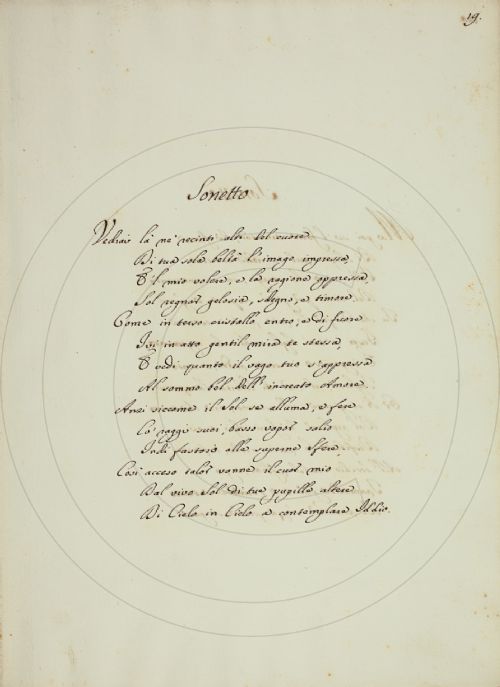 19.
Sonetto
Vedrai là ne' recinti alti del cuore
Di tua sola beltà l'imago impressa,
E 'l mio volere, e la ragione oppressa,
Sol regnar gelosia, sdegno, e timore.
Come in terso cristallo entro, e di fuore
Ivi in atto gentil mira te stessa,
E vedi quanto il vago tuo s'appressa
Al sommo bel dell' increato Amore.
Anzi siccome il Sol se alluma, e fere
Co' raggi suoi, basso vapor salio
Indi fastoso alle superne Sfere,
Così acceso talor vanne il cuor mio
Dal vivo Sol di tue pupille altere
Di Cielo in Cielo a contemplare Iddio.